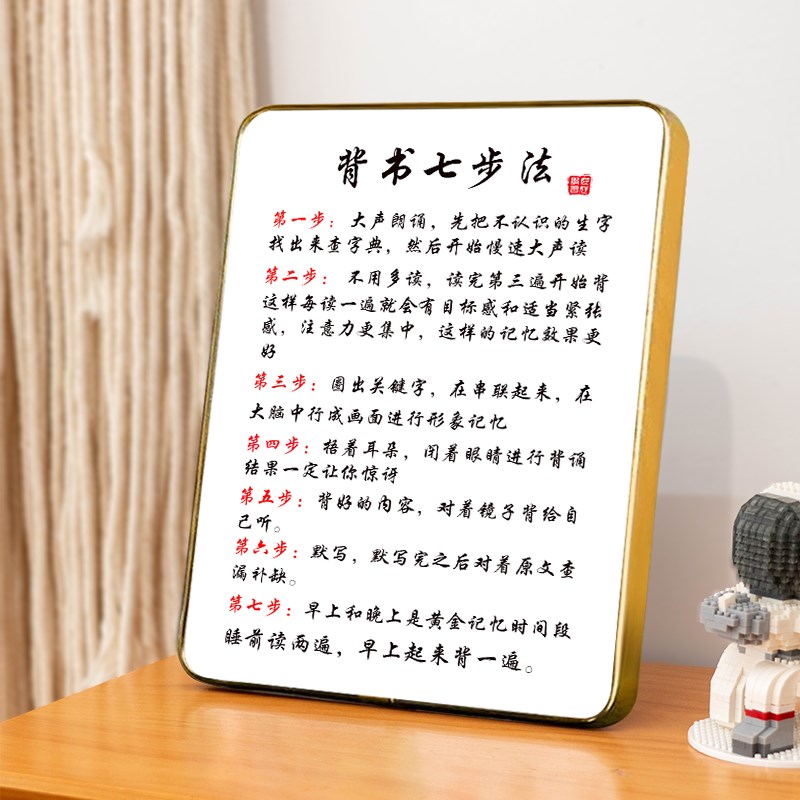 背书七步法
第一步：大声朗诵，先把不认识的生字
找出来查字典，然后开始慢速大声读
第二步：不用多读，读完第三遍开始背
这样每读一遍就会有目标感和适当紧张
感，注意力更集中，这样的记忆效果更
好
第三步：圈出关键字，在串联起来，在
大脑中行成画面进行形象记忆
第四步：梧着耳朵，闭着眼睛进行背诵
结果一定让你惊讶
第五步：背好的内容，对着镜子背给自
己听。
第六步：默写，默写完之后对着原文查
漏补缺。
第七步：早上和晚上是黄金记忆时间段
睡前读两遍，早上起来背一遍。